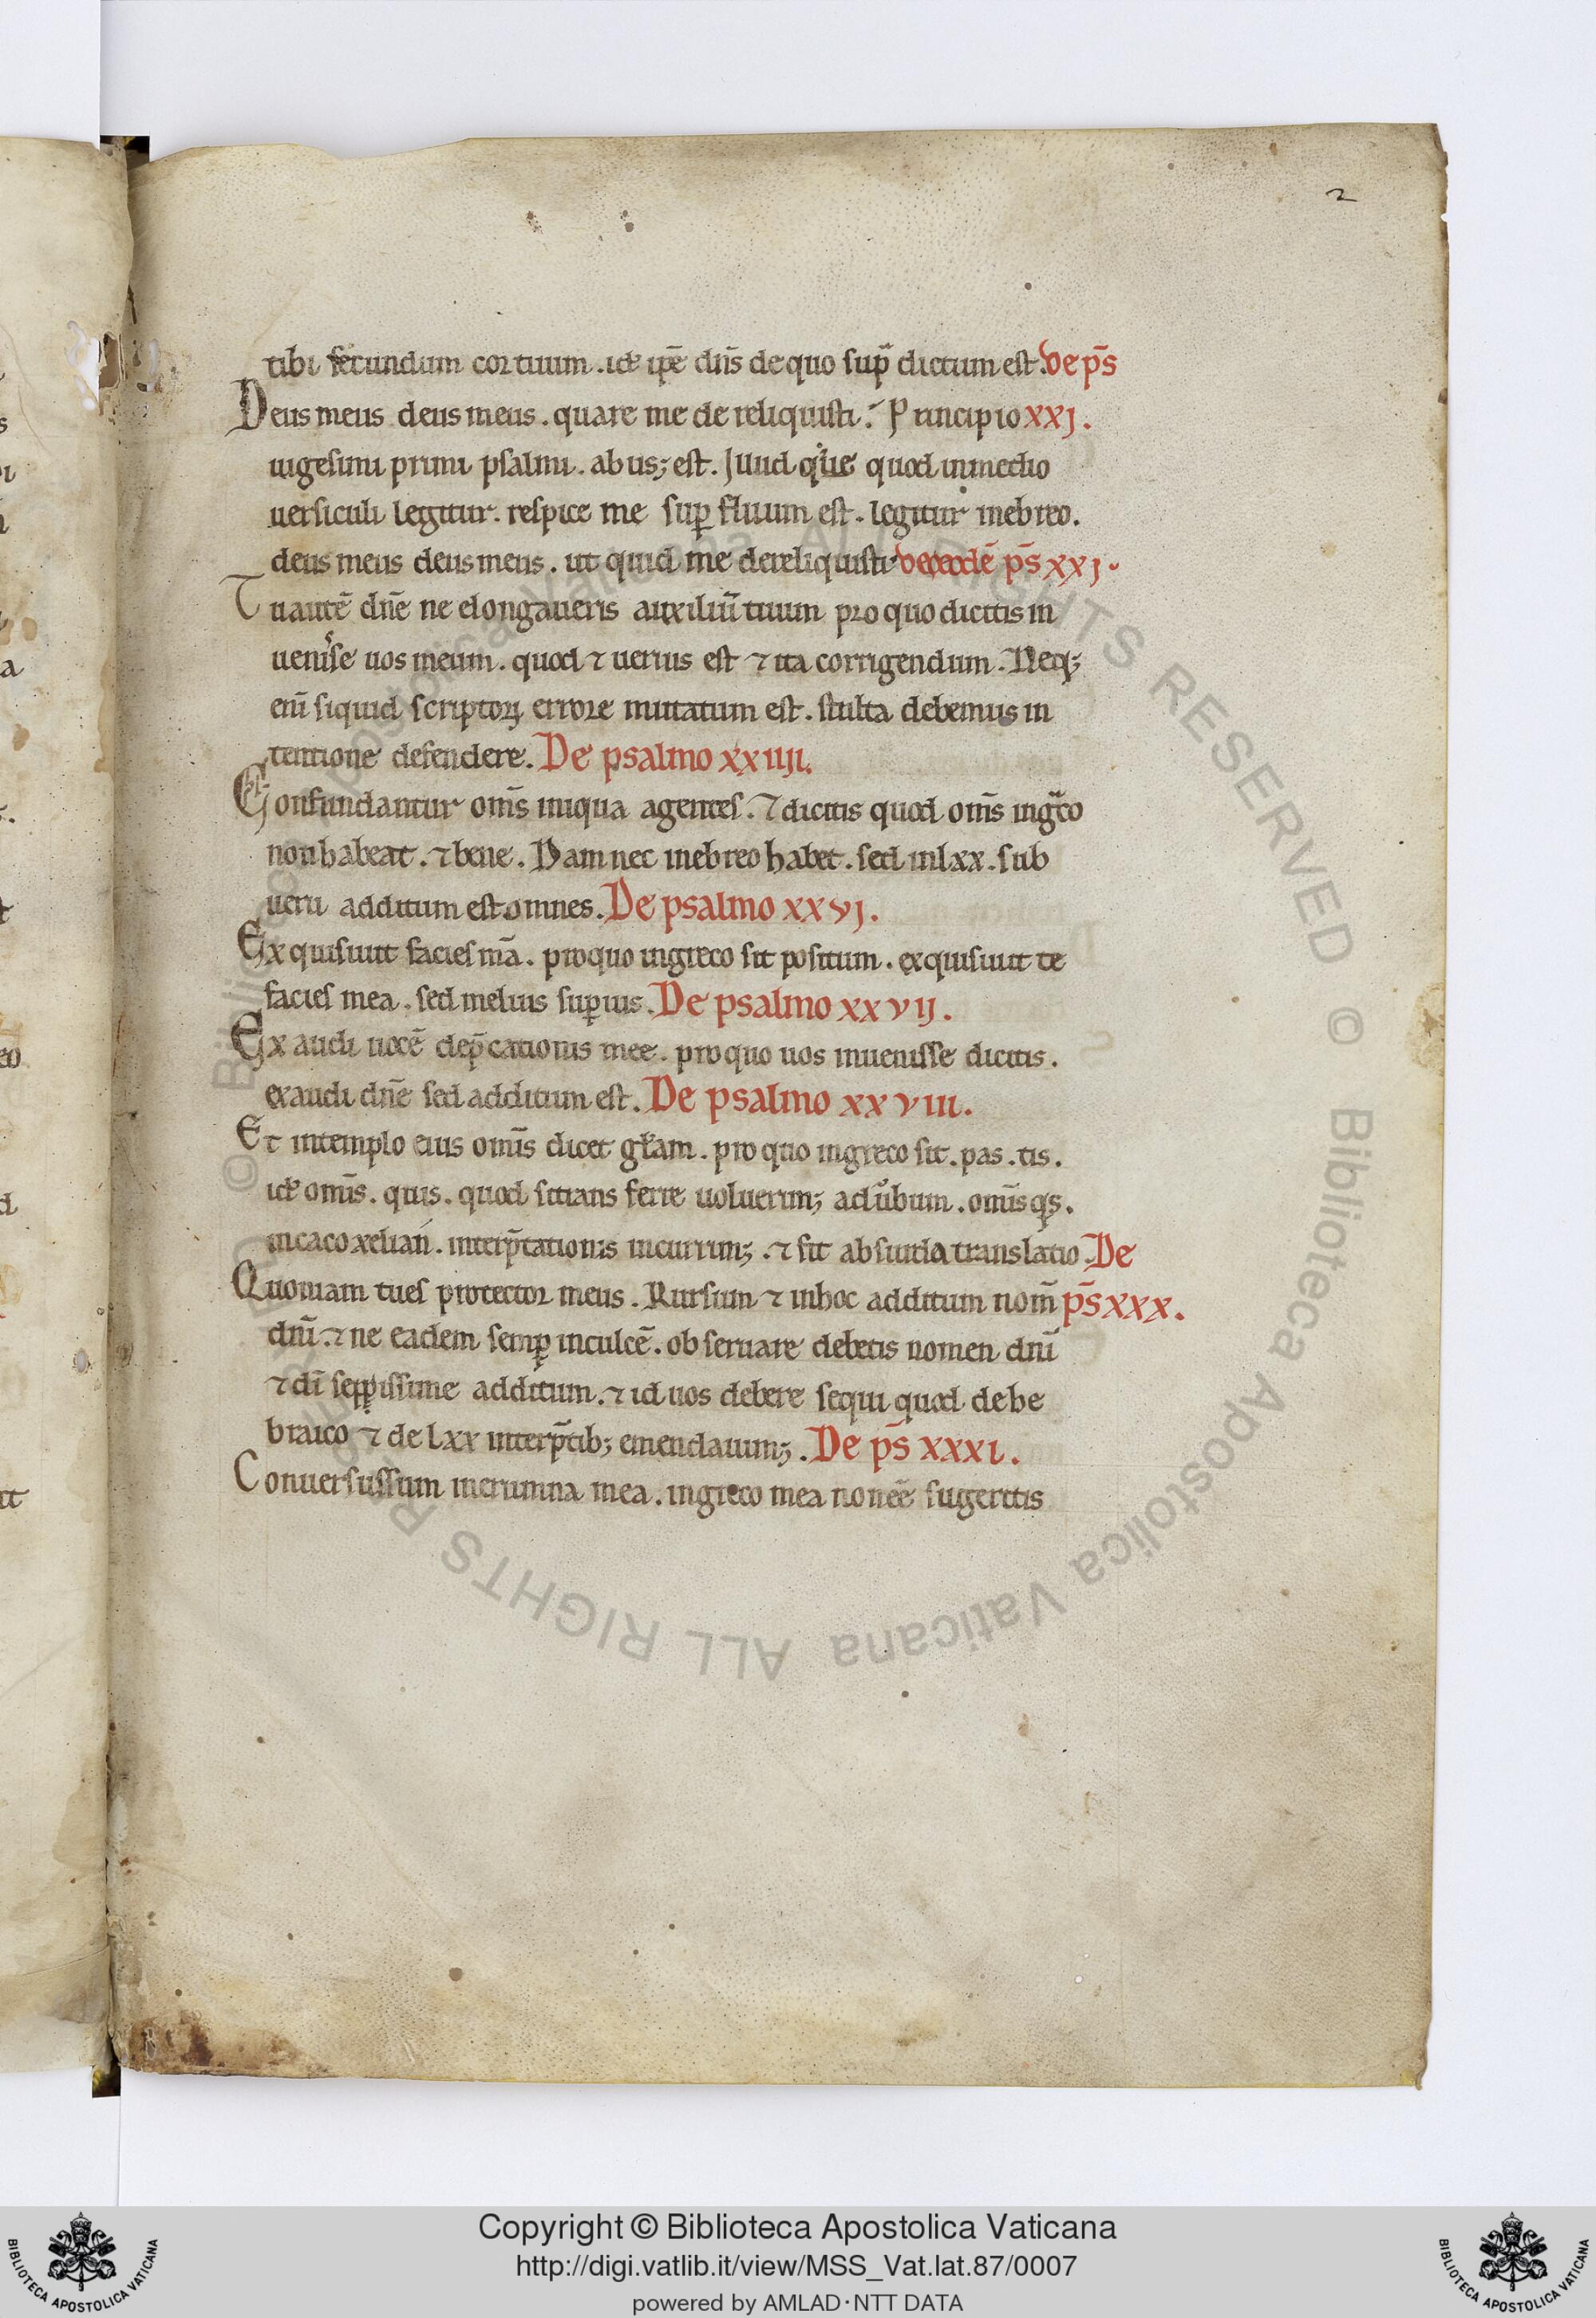 2
tibi secundum cor tuum . idē ipē dn̄s de quo sup̄ dictum est . De ps̄
Deus meus deus meus . quare me dereliquisti . Principio XXJ .
uigesimi primi psalmi . ab us; est . quod in medio
uersiculi legitur . respice me sup̱ fluum est . legitur in ebreo .
deus meus deus meus . ut quid me dereliquisti ps̄ XXJ .
Tu autē dn̄e ne elongaueris auxiliū tuum pro quo dicitis in
uenisse uos meum . quod ⁊ uerius est ⁊ ita corrigendum . Neq;
eni̅ siquid scriptoꝝ errore mutatum est . stulta debemus in
tentione defendere . De psalmo XXIIIJ.
Confundantur om̄s iniqua agentes . ⁊ dicitis quod om̄s in gr̃co
non habeat . ⁊ bene . Nam nec in ebreo habet . sed in lxx . sub
ueru additum est omnes . De psalmo XXVJ .
Exquisiuit facies m̄a . pro quo in greco sit positum . exquisiuit te
facies mea . sed melius sup̱ius . De psalmo XXVIJ .
Exaudi uocē dep̄cationis mee . pro quo uos inuenisse dicitis .
exaudi dn̄e sed additum est . De psalmo XXVIII .
Et in templo eius om̄s dicet gl̄am . pro quo in greco sit . pas . tis .
idē om̄s . quis . quod si trans ferre uoluerim; ad ủbum . om̄s qs̱ .
in cacoxelian . interp̄tationis incurrim; . ⁊ fit absurda translatio . De
Quoniam tu es protector meus . Rursum ⁊ in hoc additum nom̄ ps̄ XXX .
dn̄i ⁊ ne eadem semp̱ inculcē . obseruare debetis nomen dn̄i
⁊ di̅ sep̱issime additum . ⁊ id uos debere sequi quod de he
braico ⁊ de Lxx interp̄tib; emendauim; . De ps̄ XXXI .
Conuersus sum in erumna mea . in greco mea non ēe sugeritis
© Biblioteca Apostolica Vaticana ALL RIGHTS RESERVED © Biblioteca Apostolica Vaticana ALL RIGHTS RESERVED
Copyright © Biblioteca Apostolica Vaticana
http://digi.vatlib.it/view/MSS_Vat.lat.87/0007
powered by AMLAD·NTT DATA
BIBLIOTECA APOSTOLICA VATICANA
BIBLIOTECA APOSTOLICA VATICANA